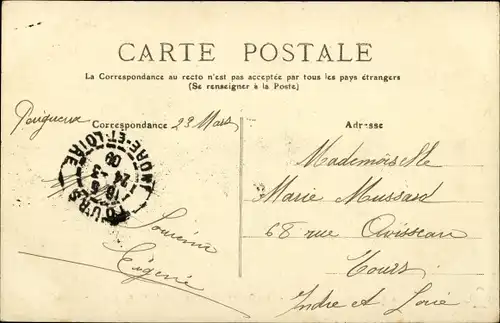 CARTE POSTALE
La Correspondance au recto n'est pas acceptée par tous les pays étrangers
(Se renseigner à la Poste)
Correspondance
Adresse
Périgueux 23 Mars
TOURS
INDRE-ET-LOIRE
24 - 3
09
Souvenir
Eugénie
Mademoiselle
Marie Mussard
68 rue Avisseau
Tours
Indre et Loire